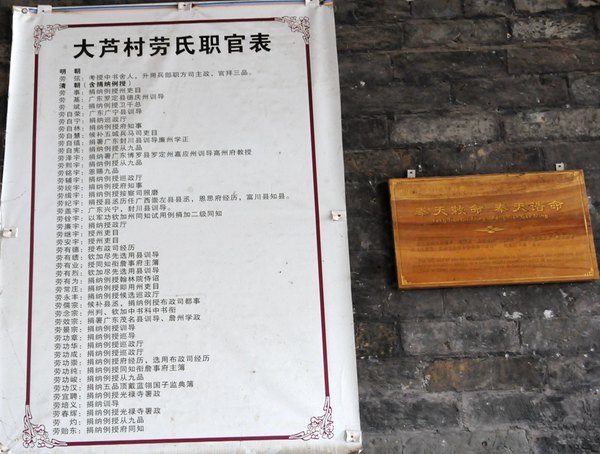 大芦村劳氏职官表
明　朝
劳　弦：考授中书舍人，升周兵部职方司主政，官拜三品。
清　朝（含捐纳例授）
劳　事：捐纳例授州吏目
劳　基：广东罗定县德庆州训导
劳　斌：捐纳例授卫千总
劳自荣：广东广宁县训导
劳自宁：捐纳巡政厅
劳自林：捐纳例授府知事
劳自慧：候补五城兵马司吏目
劳自镇：捐署广东封川县训导廉州学正
劳自宪：捐纳例授从九品
劳泽宇：捐纳署广东博罗县罗定州嘉应州训导高州府教授
劳熙宇：捐纳例授从九品
劳铭宇：恩赐九品
劳辅宇：捐纳例授巡政厅
劳绩宇：捐纳例授府知事
劳缉宇：捐纳例授按察司照磨
劳纪宇：捐授县丞历任广西崇左县县丞，恩思府经历，富川县知县。
劳盖宇：广东兴宁，封川县训导。
劳铨宇：以军功钦加州同知试用例捐加二级同知
劳廉宇：捐纳授巡政厅
劳继宇：授州吏目
劳安宇：授州吏目
劳有德：授布政司经历
劳有绩：钦加尽先选用县训导
劳有业：授同知衔詹事府主簿
劳有烈：钦加尽先选用县训导
劳有为：捐纳例授翰林院侍诏
劳常庄：捐纳例授即用州吏目
劳永丰：捐纳例授候选巡政厅
劳儒宗：候补县丞，捐纳例授布政司都事
劳念宗：州判、钦加中书科中书衔
劳效宗：捐署广东茂名县训导、詹州学政
劳景宗：捐纳例授训导
劳功章：捐纳例授巡导
劳功华：捐纳例授巡政厅
劳功成：捐纳例授巡政厅
劳功崇：捐纳例授府经历，选用布政司经历
劳功纯：捐纳例授同知衔詹事府主簿
劳功峻：捐纳例授从九品
劳功汉：捐纳五品顶戴蓝翎国子监典簿
劳宜聘：捐纳例授光禄寺署政
劳培义：捐纳训导
劳春辉：捐纳例授光禄寺署政
劳　灼：捐纳例授从九品
劳贻东：捐纳例授府同知
奉天敕命 奉天诰命